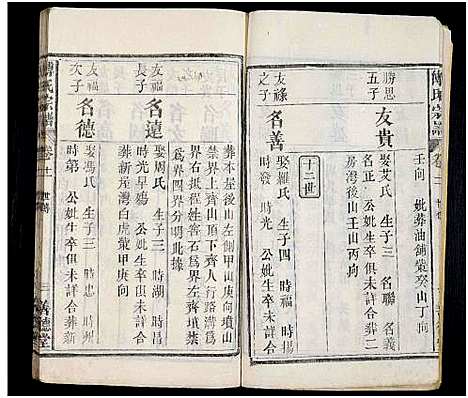 壬向 妣葬油舖藔癸山丁向
勝思
五子
友貴
娶艾氏 生子三 名聯 名義
名正 公妣生卒俱未詳合葬二
房灣後山壬山丙向
十二世
友祿
之子
名善
娶羅氏 生子四 時福 時
時光 公妣生卒俱未詳合
葬本屋後山左側甲山庚向墳山
上齊山頂下齊人行路溝爲
界右抵徑姓窖石爲界左齊墳禁
爲界四界分明此據
友福
長子
名達
娶周氏 生子三 時湖 時昌
時光早殤 公妣生卒俱未詳合
葬新窪灣白虎藔甲庚向
友福
次子
名德
娶馮氏 生子三 時忠 時州
時第 公妣生卒俱未詳合葬新
傅氏宗譜
卷十
世譜
三
善德堂